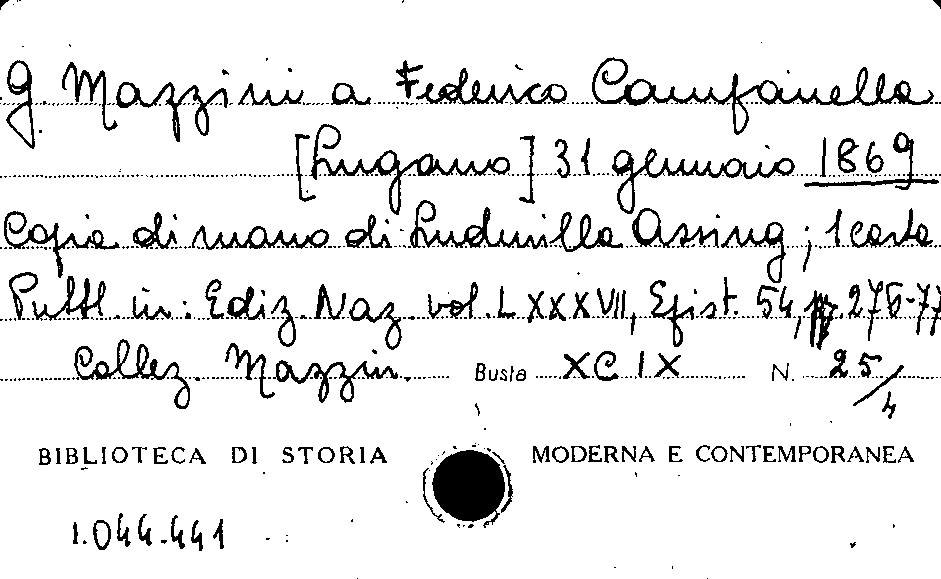 G. Mazzini a Federico Campanella
[Lugano] 31 gennaio 1869
Copia di mano di Ludmilla Assing; 1 carta
Pubbl. in: Ediz. Naz. vol. LXXXVII, Epist. 54, pp. 276-77
Collez. Mazzin. Busta XCIX N. 25/4
BIBLIOTECA DI STORIA MODERNA E CONTEMPORANEA
1.044.441